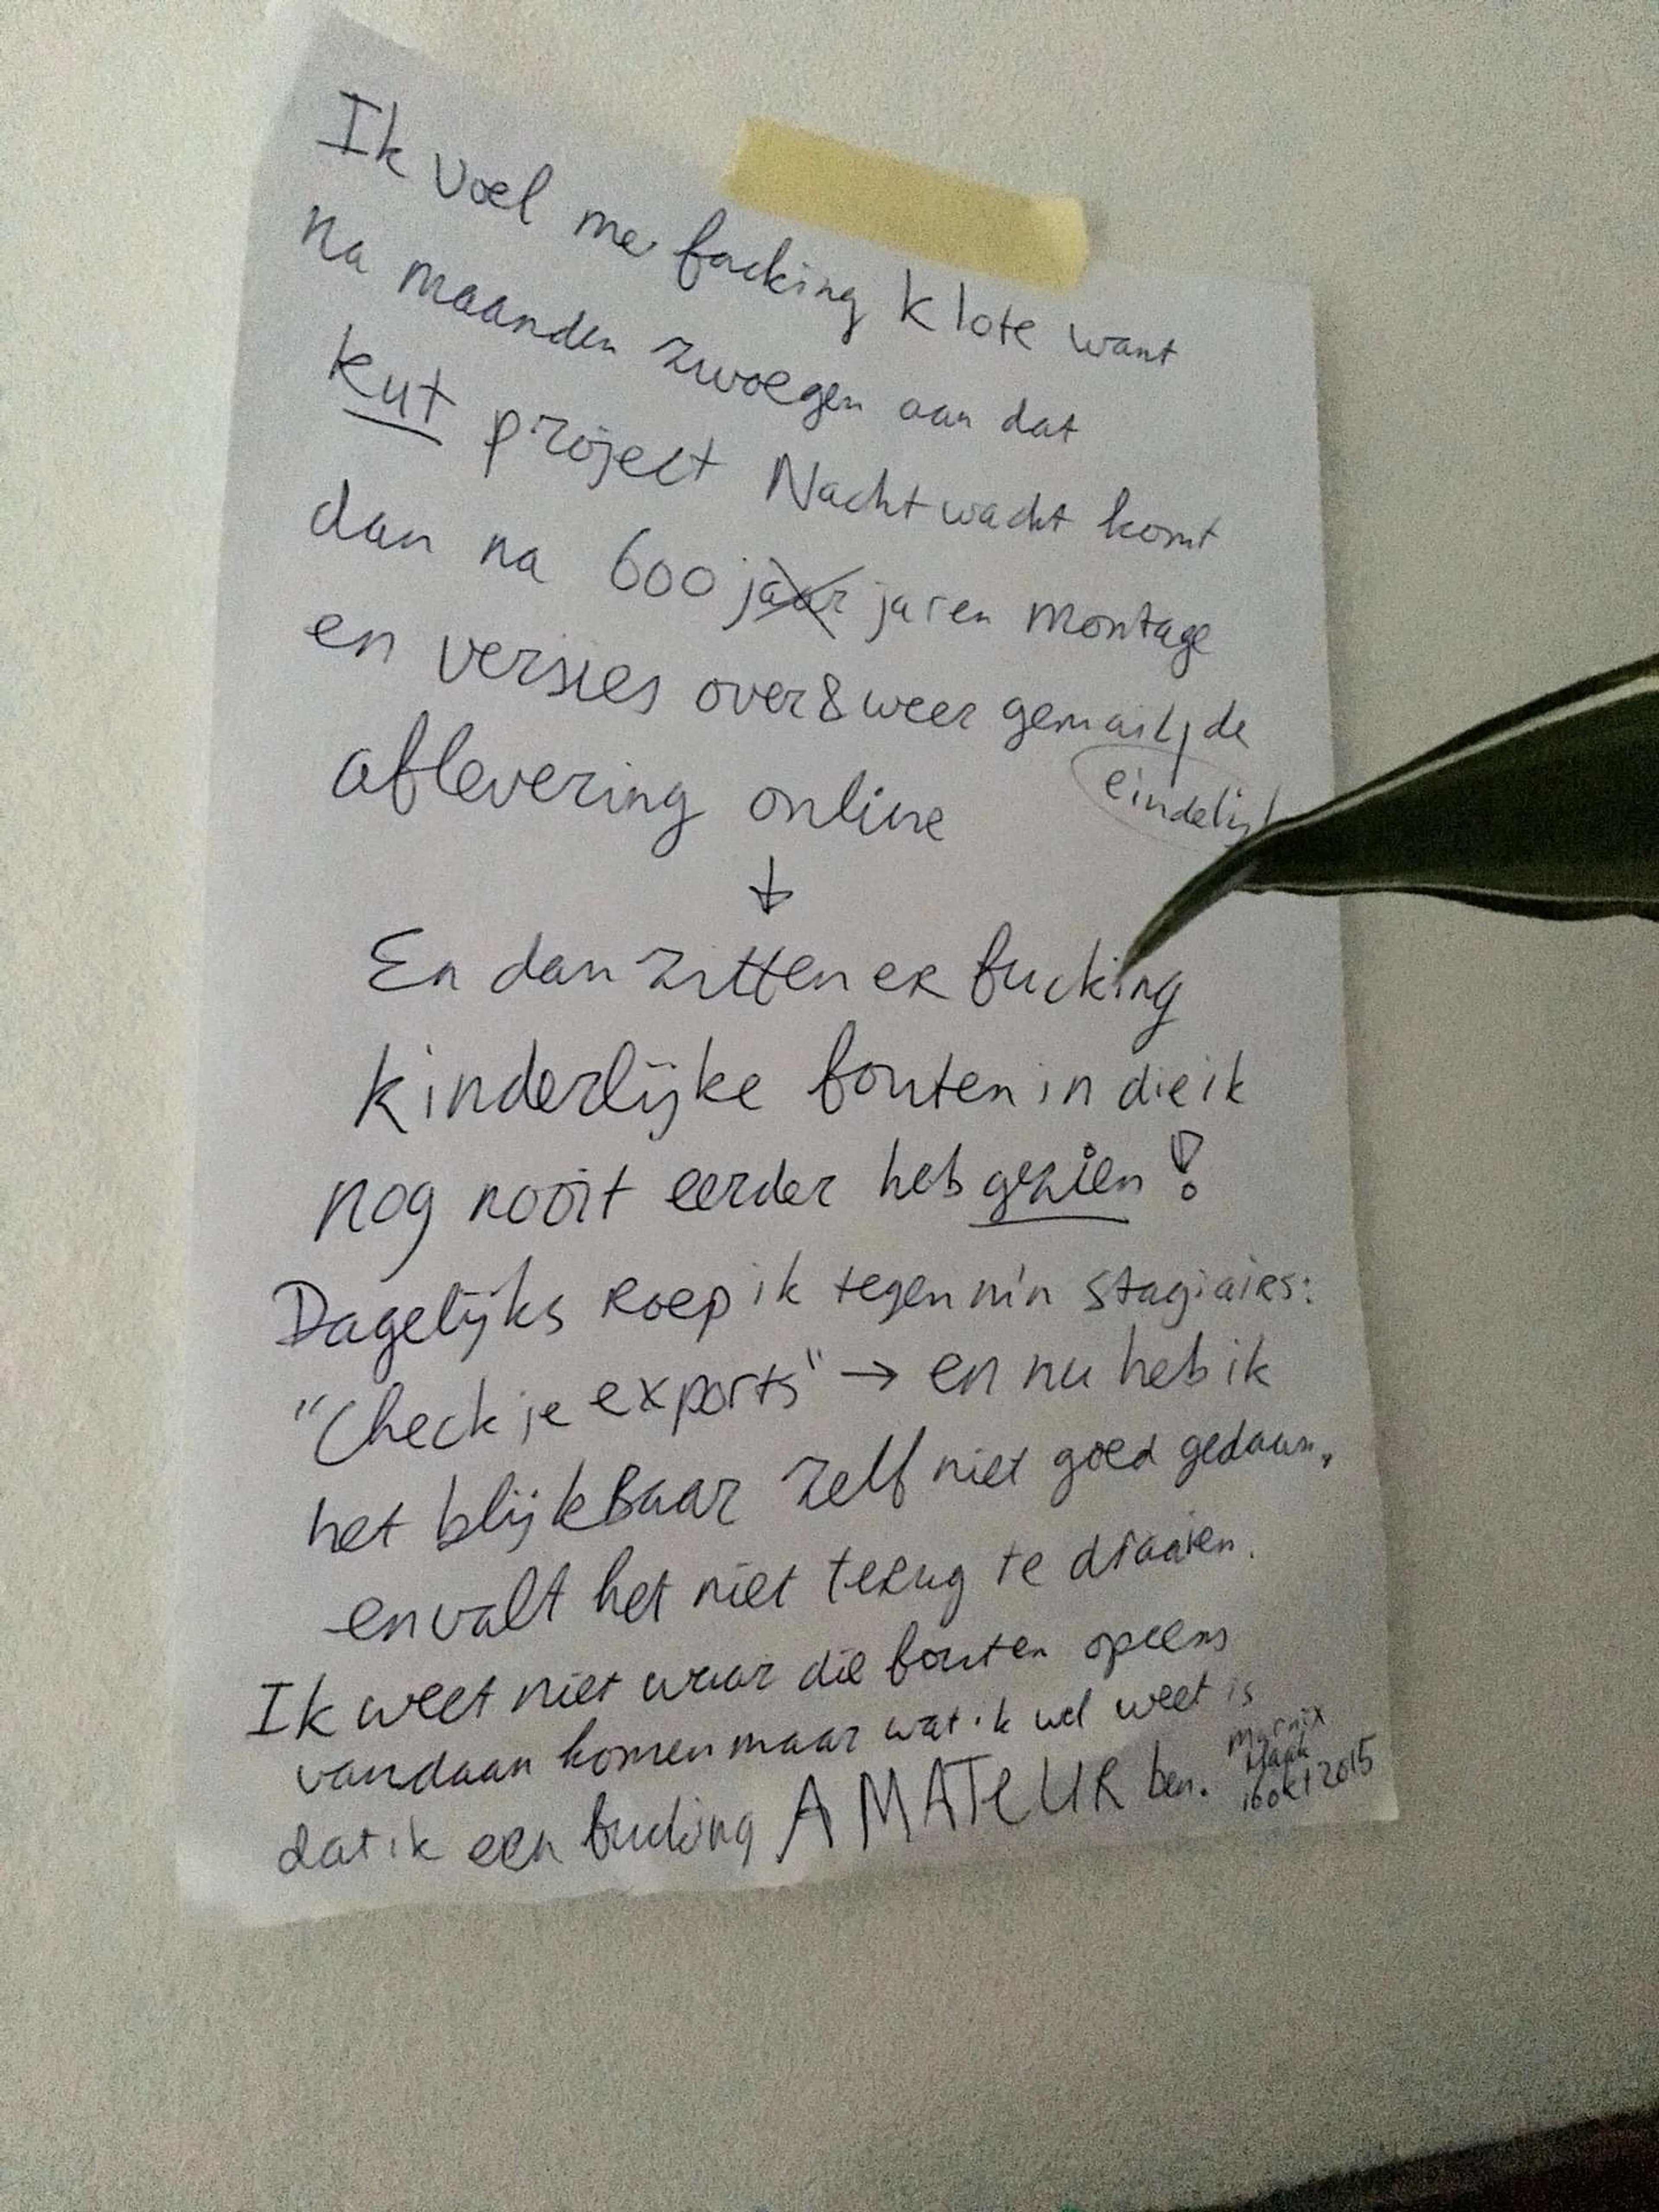 Ik voel me facking klote want
na maanden zwoegen aan dat
kut project Nachtwacht komt
dan na 600 jaar jaren montage
en versies over & weer gemaild, de
eindelijk
aflevering online
↓
En dan zitten er fucking
kinderlijke fouten in die ik
nog nooit eerder heb gezien!
Dagelijks roep ik tegen m'n stagiairs:
"Check je exports" → en nu heb ik
het blijkbaar zelf niet goed gedaan,
en valt het niet terug te draaien.
Ik weet niet waar die fouten opeens
vandaan komen maar wat ik wel weet is
dat ik een fucking AMATEUR ben.
Marnix
16 okt 2015